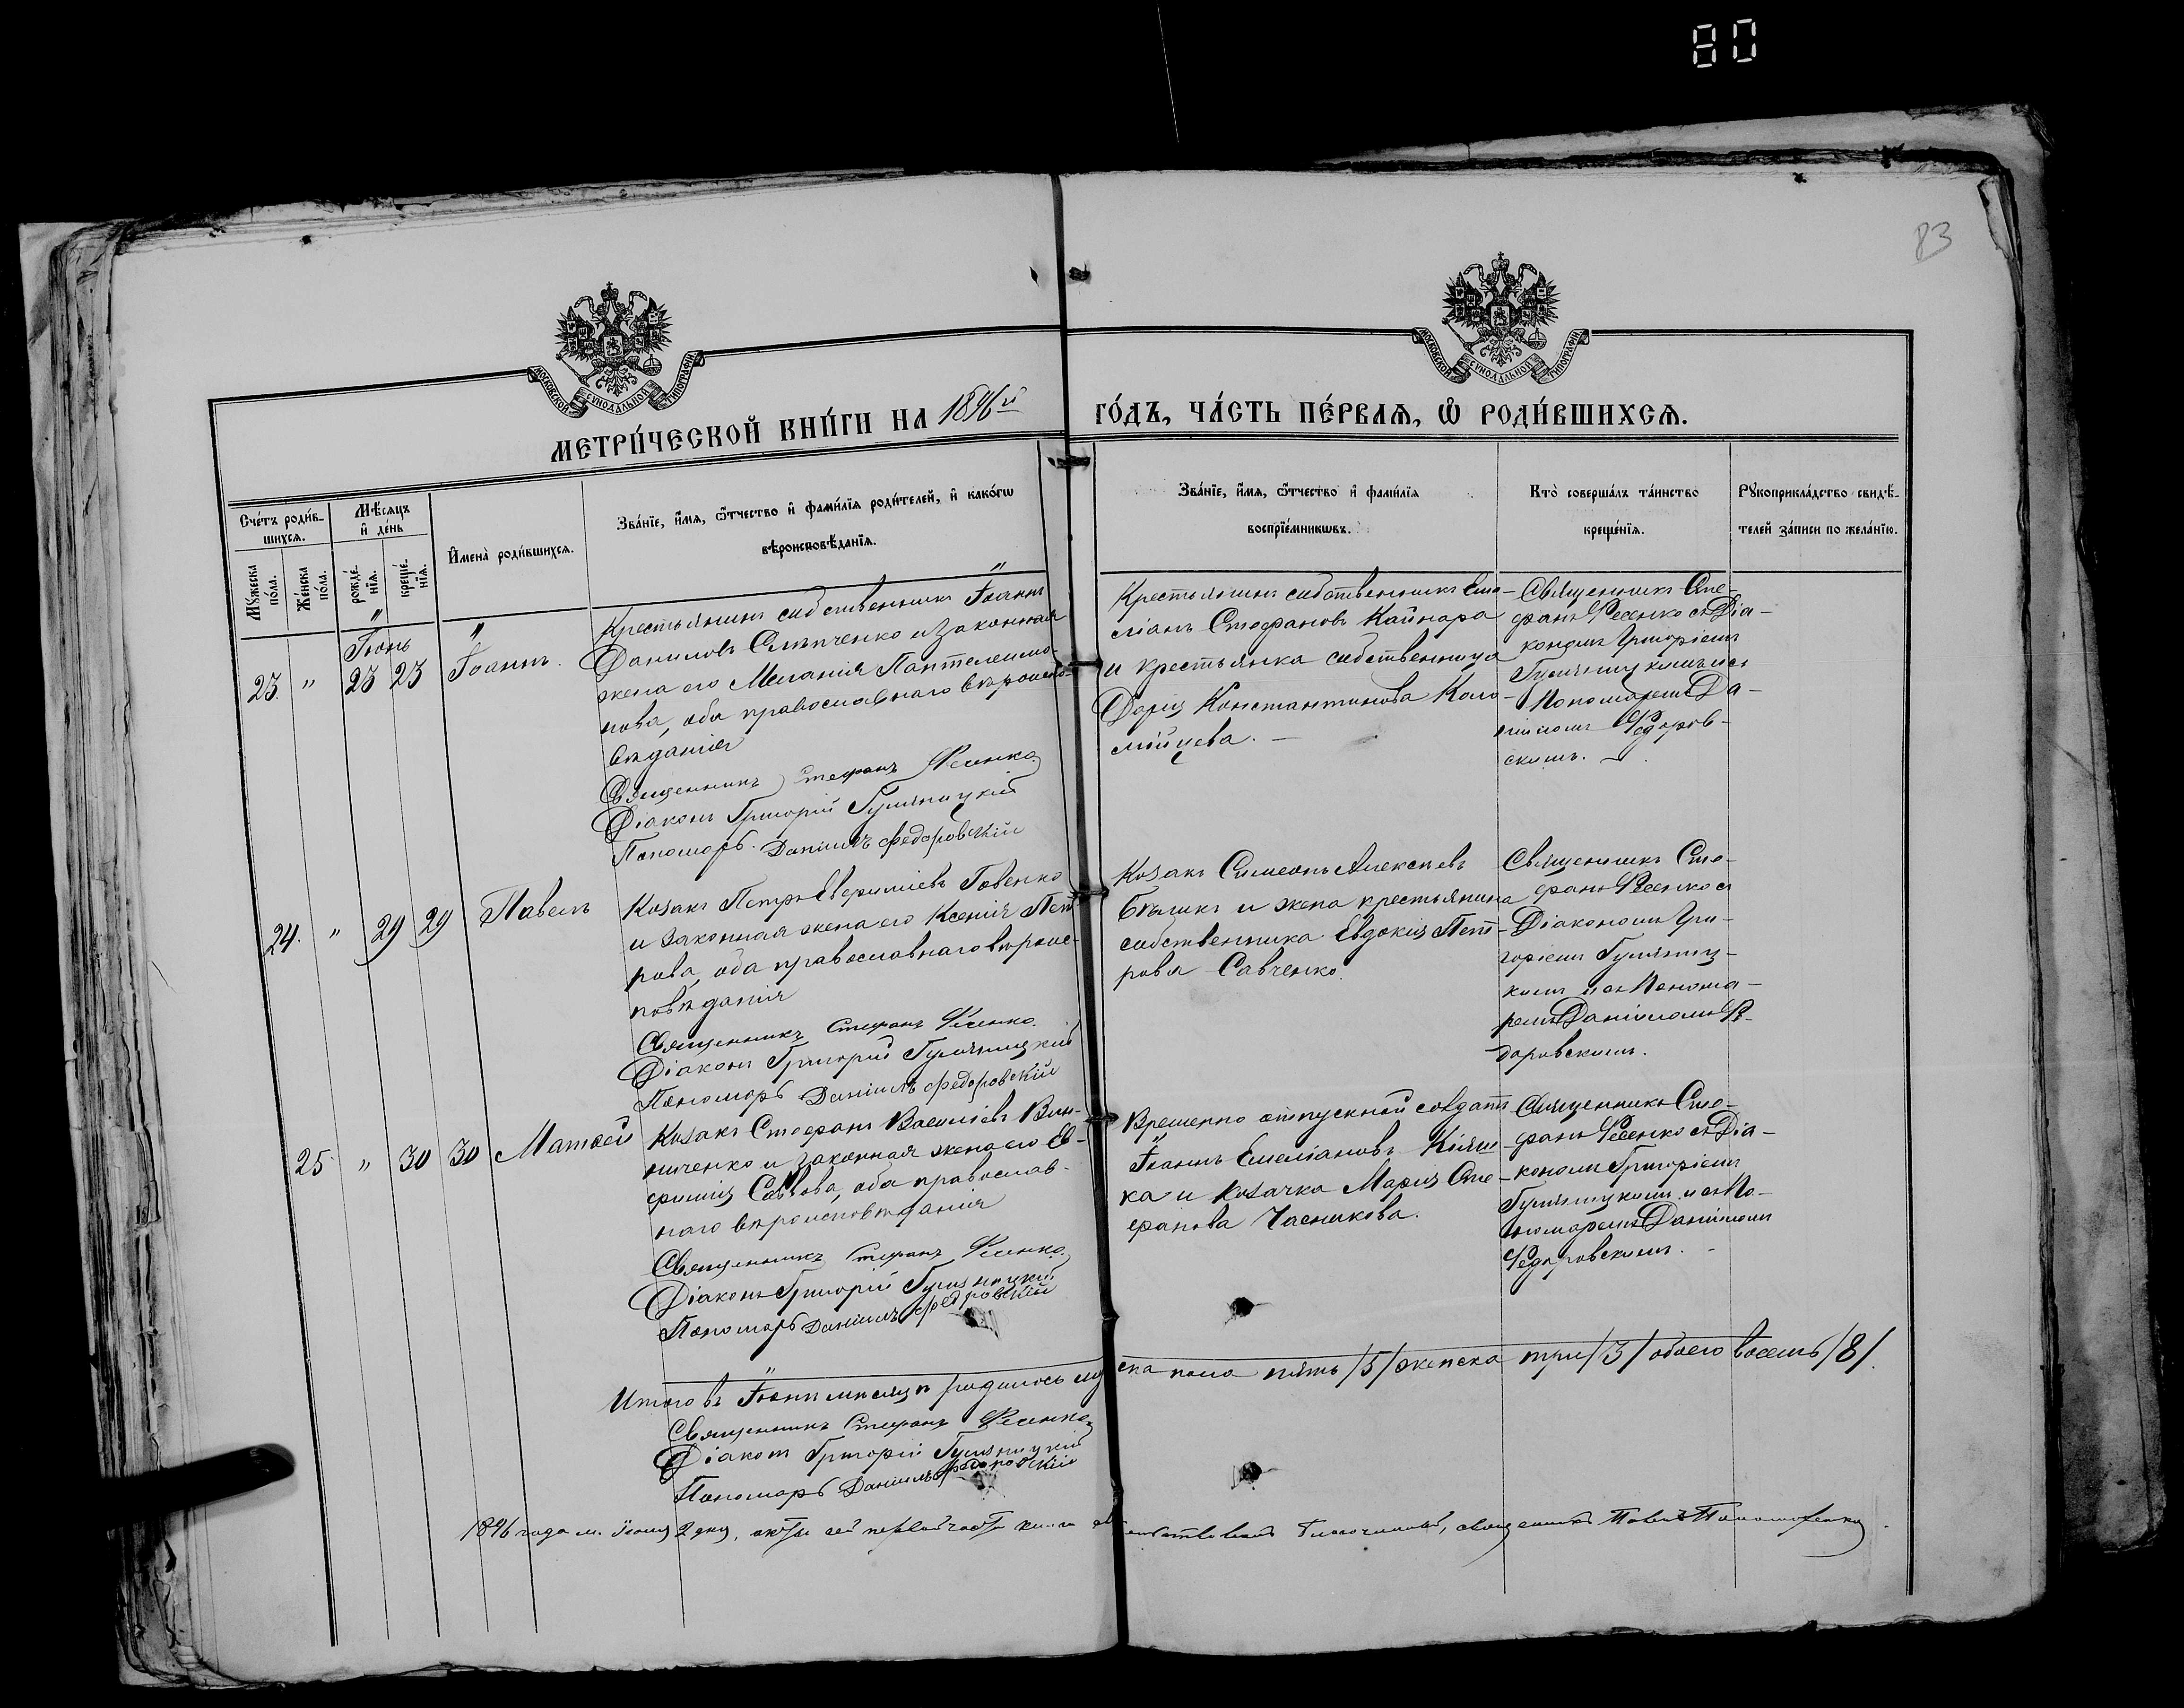 80
83
МОСКОВСКОЙ СѴНОДАЛЬНОЙ ТИПОГРАФІИ
МОСКОВСКОЙ СѴНОДАЛЬНОЙ ТИПОГРАФІИ
МЕТРИ́ЧЕСКОЙ КНИ́ГИ НА 1896й
ГО́ДЪ, ЧА́СТЬ ПЕ́РВАѦ, Ѡ҆ РОДИ́ВШИХСѦ.
Сче́тъ роди́в-
шихсѧ.
Мѣ́сѧцъ
и҆ де́нь
Мꙋ́жеска
по́ла.
Же́нска
по́ла.
рожде́-
нїѧ.
креще́-
нїѧ.
И҆мена̀ роди́вшихсѧ.
Зва́нїе, и҆́мѧ, ѻ҆́тчество и҆ фами́лїѧ роди́телей, и҆ како́гѡ
вѣроисповѣ́данїѧ.
Зва́нїе, и҆́мѧ, ѻ҆́тчество и҆ фами́лїѧ
воспрїе́мникѡвъ.
Кто̀ соверша́лъ та́инство
креще́нїѧ.
Рꙋкоприкла́дство свидѣ́-
телей за́писи по жела́нїю.
Іюнь
23. " 23 23 Іоаннъ.
Крестьянинъ собственникъ Іоаннъ
Даниловъ Слѣпченко и законная
жена его Меланія Пантелеимо-
нова, оба православнаго вѣроиспо-
вѣданія
Священникъ Стефанъ Фесенко
Діаконъ Григорій Гуляницкій
Пономарь Даніилъ Федоровскій
Крестьянинъ собственникъ Еме-
ліанъ Стефановъ Кайнара
и крестьянка собственница
Дарія Константинова Коло-
мійцева. —
Священникъ Сте-
фанъ Фесенко съ Діа-
кономъ Григоріемъ
Гуляницкимъ и съ
Пономаремъ Да-
ніиломъ Федоров-
скимъ.
24. " 29 29 Павелъ
Козакъ Петръ Евфиміевъ Говенко
и законная жена его Ксенія Пет-
рова, оба православнаго вѣроис-
повѣданія
Священникъ Стефанъ Фесенко
Діаконъ Григорій Гуляницкій
Пономарь Даніилъ Федоровскій
Козакъ Симеонъ Алексѣевъ
Бѣликъ и жена крестьянина
собственника Евдокія Пет-
рова Савченко.
Священникъ Сте-
фанъ Фесенко съ
Діакономъ Гри-
горіемъ Гуляниц-
кимъ и съ Понома-
ремъ Даніиломъ Фе-
доровскимъ.
25 " 30 30 Матѳей
Козакъ Стефанъ Василіевъ Вин-
ниченко и законная жена его Ев-
фимія Саввова, оба православ-
наго вѣроисповѣданія
Священникъ Стефанъ Фесенко
Діаконъ Григорій Гуляницкій
Пономарь Даніилъ Федоровскій
Временно отпускной солдатъ
Іоаннъ Емеліановъ Кіяш-
ка и козачка Марія Сте-
фанова Часникова.
Священникъ Сте-
фанъ Фесенко съ Діа-
кономъ Григоріемъ
Гуляницкимъ и съ По-
номаремъ Даніиломъ
Федоровскимъ. -
Итого въ Іюнѣ мѣсяцѣ родилось мужеска пола пять /5/ женска три /3/ обоего восемь /8/.
Священникъ Стефанъ Фесенко
Діаконъ Григорій Гуляницкій
Пономарь Даніилъ Федоровскій
1896 года м. Іюля 2 дня, акты сей первой части книги свидѣтельствовалъ Благочинный, священникъ Павелъ Пономаренко